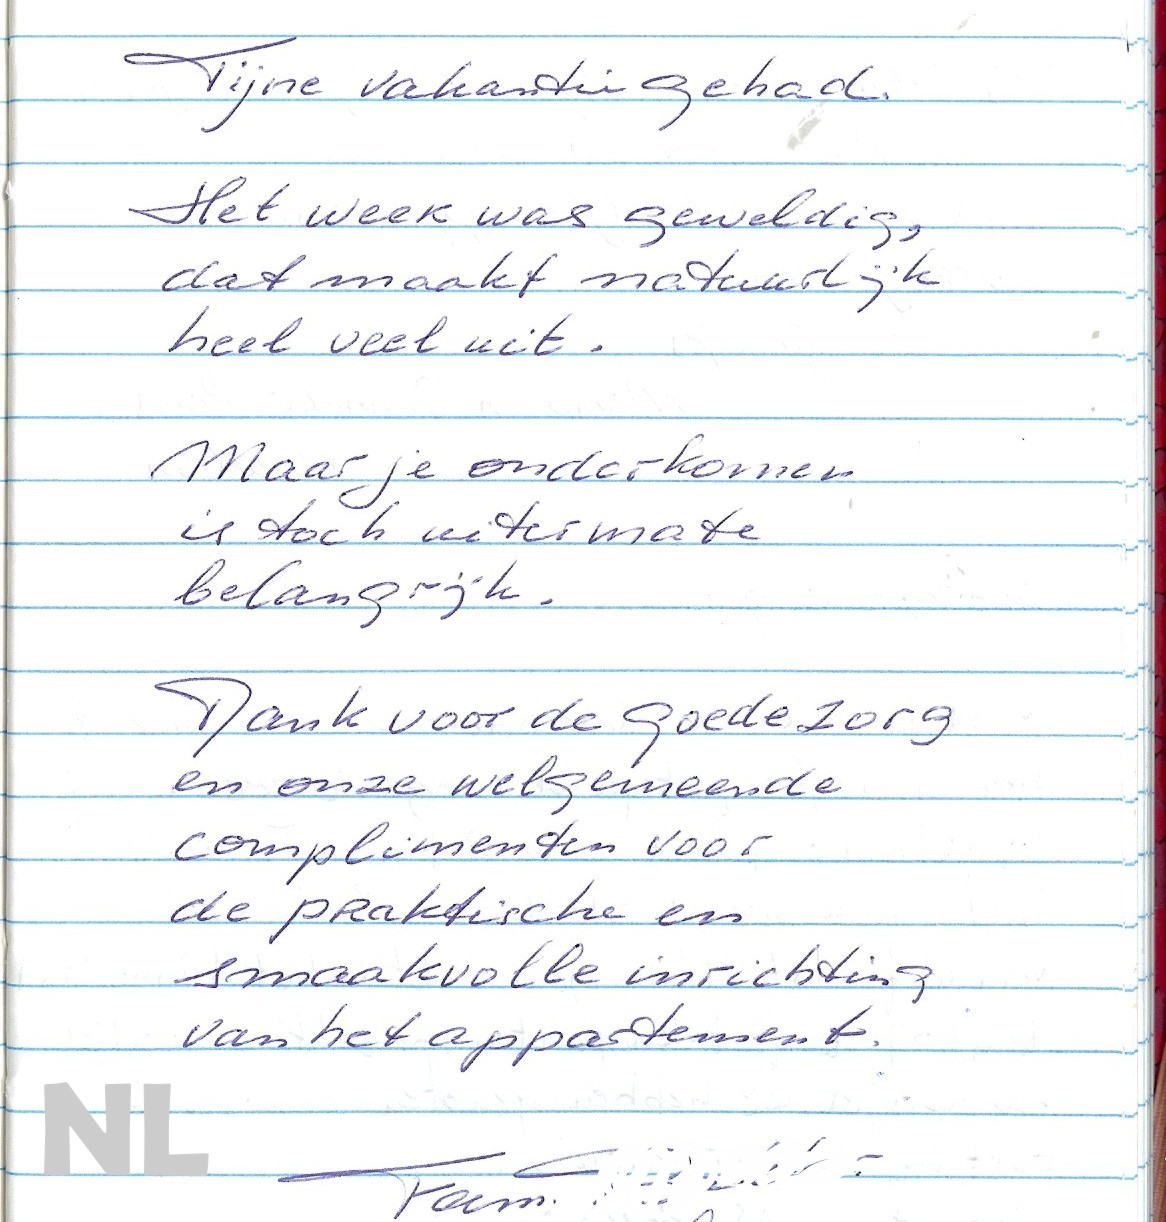 Fijne vakantie gehad.
Het weer was geweldig,
dat maakt natuurlijk
heel veel uit.
Maar je onderkomen
is toch uitermate
belangrijk.
Dank voor de goede zorg
en onze welgemeende
complimenten voor
de praktische en
smaakvolle inrichting
van het appartement.
NL
Fam.